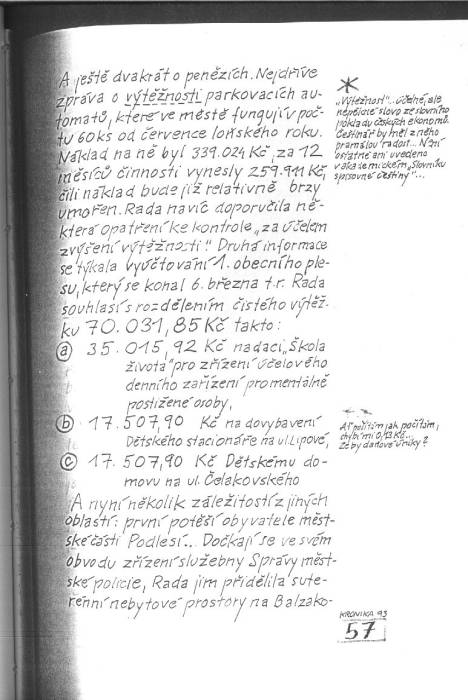 A ještě dvakrát o penězích. Nejdříve
zpráva o výtěžnosti parkovacích au-
tomatů, které ve městě fungují v poč-
tu 60 ks od července loňského roku.
Náklad na ně byl 339.024 Kč, za 12
měsíců činnosti vynesly 259.911 Kč
čili náklad bude již relativně brzy
umořen. Rada navíc doporučila ně-
která opatření ke kontrole „za účelem
zvýšení výtěžnosti." Druhá informace
se týkala vyúčtování 1. obecního ple-
su, který se konal 6. března t.r. Rada
souhlasí s rozdělením čistého výtěž-
ku 70.031,85 Kč takto:
a 35.015,92 Kč nadaci „Škola
života" pro zřízení účelového
denního zařízení pro mentálně
postižené osoby,
b 17.507,90 Kč na dovybavení
Dětského stacionáře na ul. Lipové,
c 17.507,90 Kč Dětskému do-
movu na ul. Čelakovského
A nyní několik záležitostí z jiných
oblastí: první potěší obyvatele měst-
ské části Podlesí... Dočkají se ve svém
obvodu zřízení služebny Správy měst-
ské policie, Rada jim přidělila sute-
rénní nebytové prostory na Balzako-
*
„Výtěžnost"... účelné, ale
nepěkné slovo ze slovního
pokladu českých ekonomů.
Češtinář by měl z něho
pramalou radost... Není
ostatně ani uvedeno
v akademickém „Slovníku
spisovné češtiny"...
Ať počítám jak počítám,
chybí mi 0,13 Kč...
Že by daňové úniky?
KRONIKA 93
57